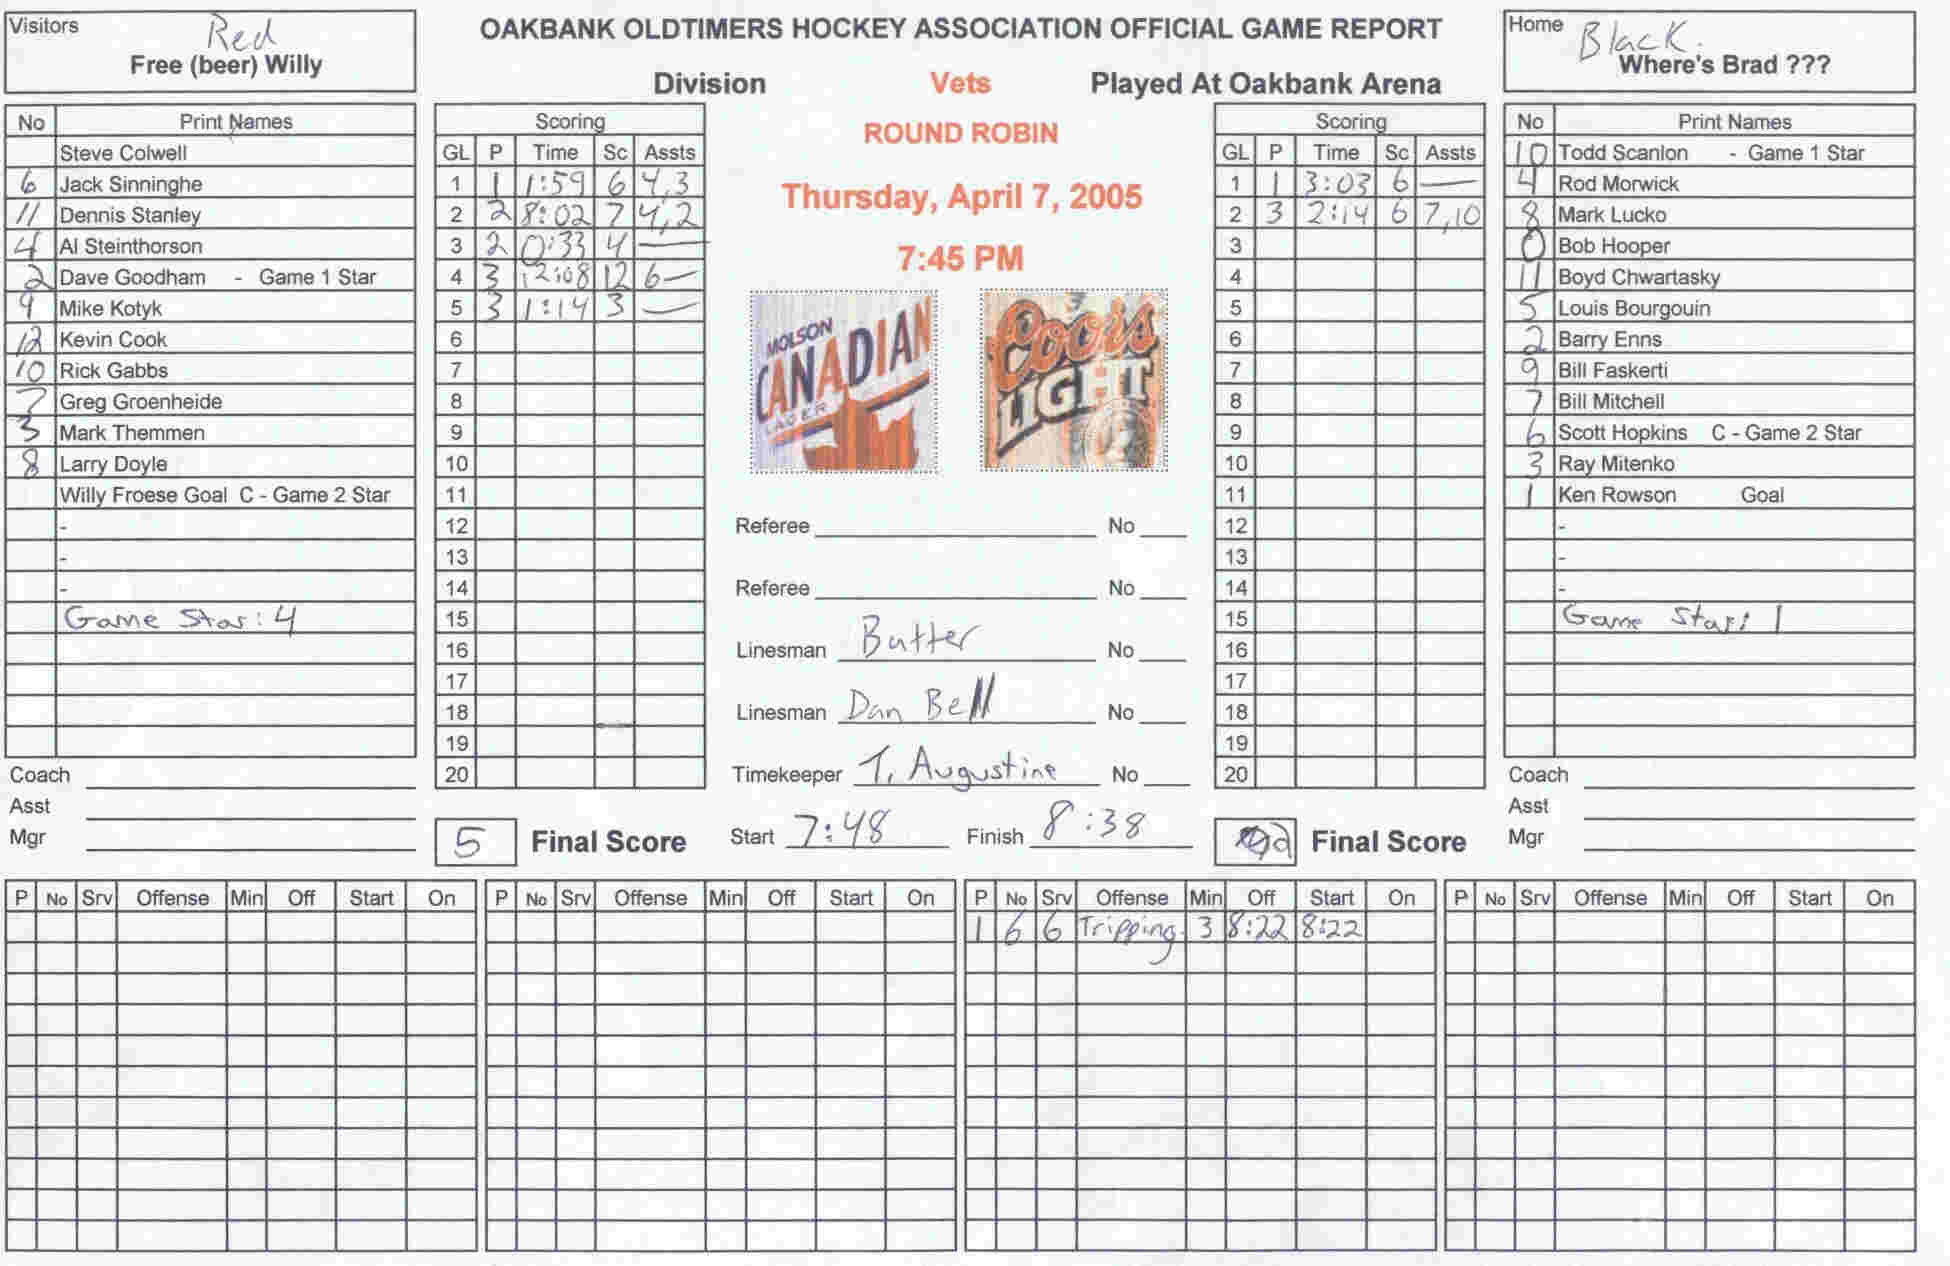 Visitors
Red
Free (beer) Willy
OAKBANK OLDTIMERS HOCKEY ASSOCIATION OFFICIAL GAME REPORT
Division Vets Played At Oakbank Arena
ROUND ROBIN
Thursday, April 7, 2005
7:45 PM
Home
Black.
Where's Brad ???
No Print Names
Steve Colwell
6 Jack Sinninghe
11 Dennis Stanley
4 Al Steinthorson
2 Dave Goodham - Game 1 Star
9 Mike Kotyk
12 Kevin Cook
10 Rick Gabbs
7 Greg Groenheide
3 Mark Themmen
8 Larry Doyle
Willy Froese Goal C - Game 2 Star
-
-
-
Game Star: 4
Coach
Asst
Mgr
Scoring
GL P Time Sc Assts
1 1 1:59 6 4,3
2 2 8:02 7 4,2
3 2 0:33 4 —
4 3 12:08 12 6—
5 3 1:14 3 —
6
7
8
9
10
11
12
13
14
15
16
17
18
19
20
5 Final Score
MOLSON
CANADIAN
LAGER
Coors
LIGHT
Referee No
Referee No
Linesman Butter No
Linesman Dan Bell No
Timekeeper T. Augustine No
Start 7:48 Finish 8:38
Scoring
GL P Time Sc Assts
1 1 3:03 6 —
2 3 2:14 6 7,10
3
4
5
6
7
8
9
10
11
12
13
14
15
16
17
18
19
20
2 Final Score
No Print Names
10 Todd Scanlon - Game 1 Star
4 Rod Morwick
8 Mark Lucko
0 Bob Hooper
11 Boyd Chwartasky
5 Louis Bourgouin
2 Barry Enns
9 Bill Faskerti
7 Bill Mitchell
6 Scott Hopkins C - Game 2 Star
3 Ray Mitenko
1 Ken Rowson Goal
-
-
-
Game Star: 1
Coach
Asst
Mgr
P No Srv Offense Min Off Start On
P No Srv Offense Min Off Start On
P No Srv Offense Min Off Start On
1 6 6 Tripping 3 8:22 8:22
P No Srv Offense Min Off Start On